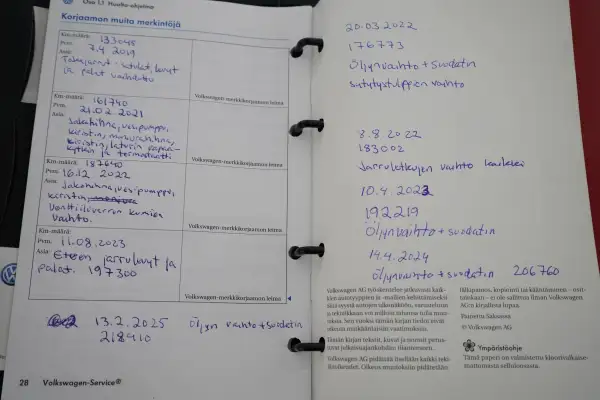 Osa 1.1 Huolto-ohjelma
Korjaamon muita merkintöjä
Km-määrä: 133045
Pvm: 7.4 2019
Asia: Takajarrut - satulat, levyt
ja palat vaihdettu
Volkswagen-merkkikorjaamon leima
Km-määrä: 161740
Pvm. 21.02.2021
Asia: Jakohihna, vesipumppu,
kiristin, moniurahihna,
kiristin, laturin vapaa-
kytkin ja termostaatti
Volkswagen-merkkikorjaamon leima
Km-määrä: 187640
Pvm: 16.12 2022
Asia: Jakohihna, vesipumppu,
kiristin,
Venttiiliverron kumien
vaihto.
Volkswagen-merkkikorjaamon leima
Km-määrä:
Pvm. 11.08.2023
Asia: Eteen jarrulevyt ja
palat. 197300
Volkswagen-merkkikorjaamon leima
13.2.2025 Öljyn vaihto + suodatin
218410
28 Volkswagen-Service®
20.03.2022
176773
Öljynvaihto + suodatin
Sytytystulppien vaihto
8.8.2022
183002
Jarruletkujen vaihto kaikki
10.4.2023
192219
Öljynvaihto + suodatin
14.4.2024
Öljynvaihto + suodatin 206760
Volkswagen AG työskentelee jatkuvasti kaik-
kien autotyyppien ja -mallien kehittämiseksi
oikeuksia muutoksiin pidätetään
Tämän kirjan tekstit, kuvat ja normit perus-
Volkswagen AG pidättää itsellään kaikki teki-
jänoikeudet. Oikeus muutoksiin pidätetään
Jälkipainos, kopiointi tai kääntäminen - osit-
tainkaan - ei ole sallittua ilman Volkswagen
AG:n kirjallista lupaa.
Painettu Saksassa
© Volkswagen AG
Ympäristöohje
Tämä paperi on valmistettu kloorivalkaise-
mattomasta selluloosasta.